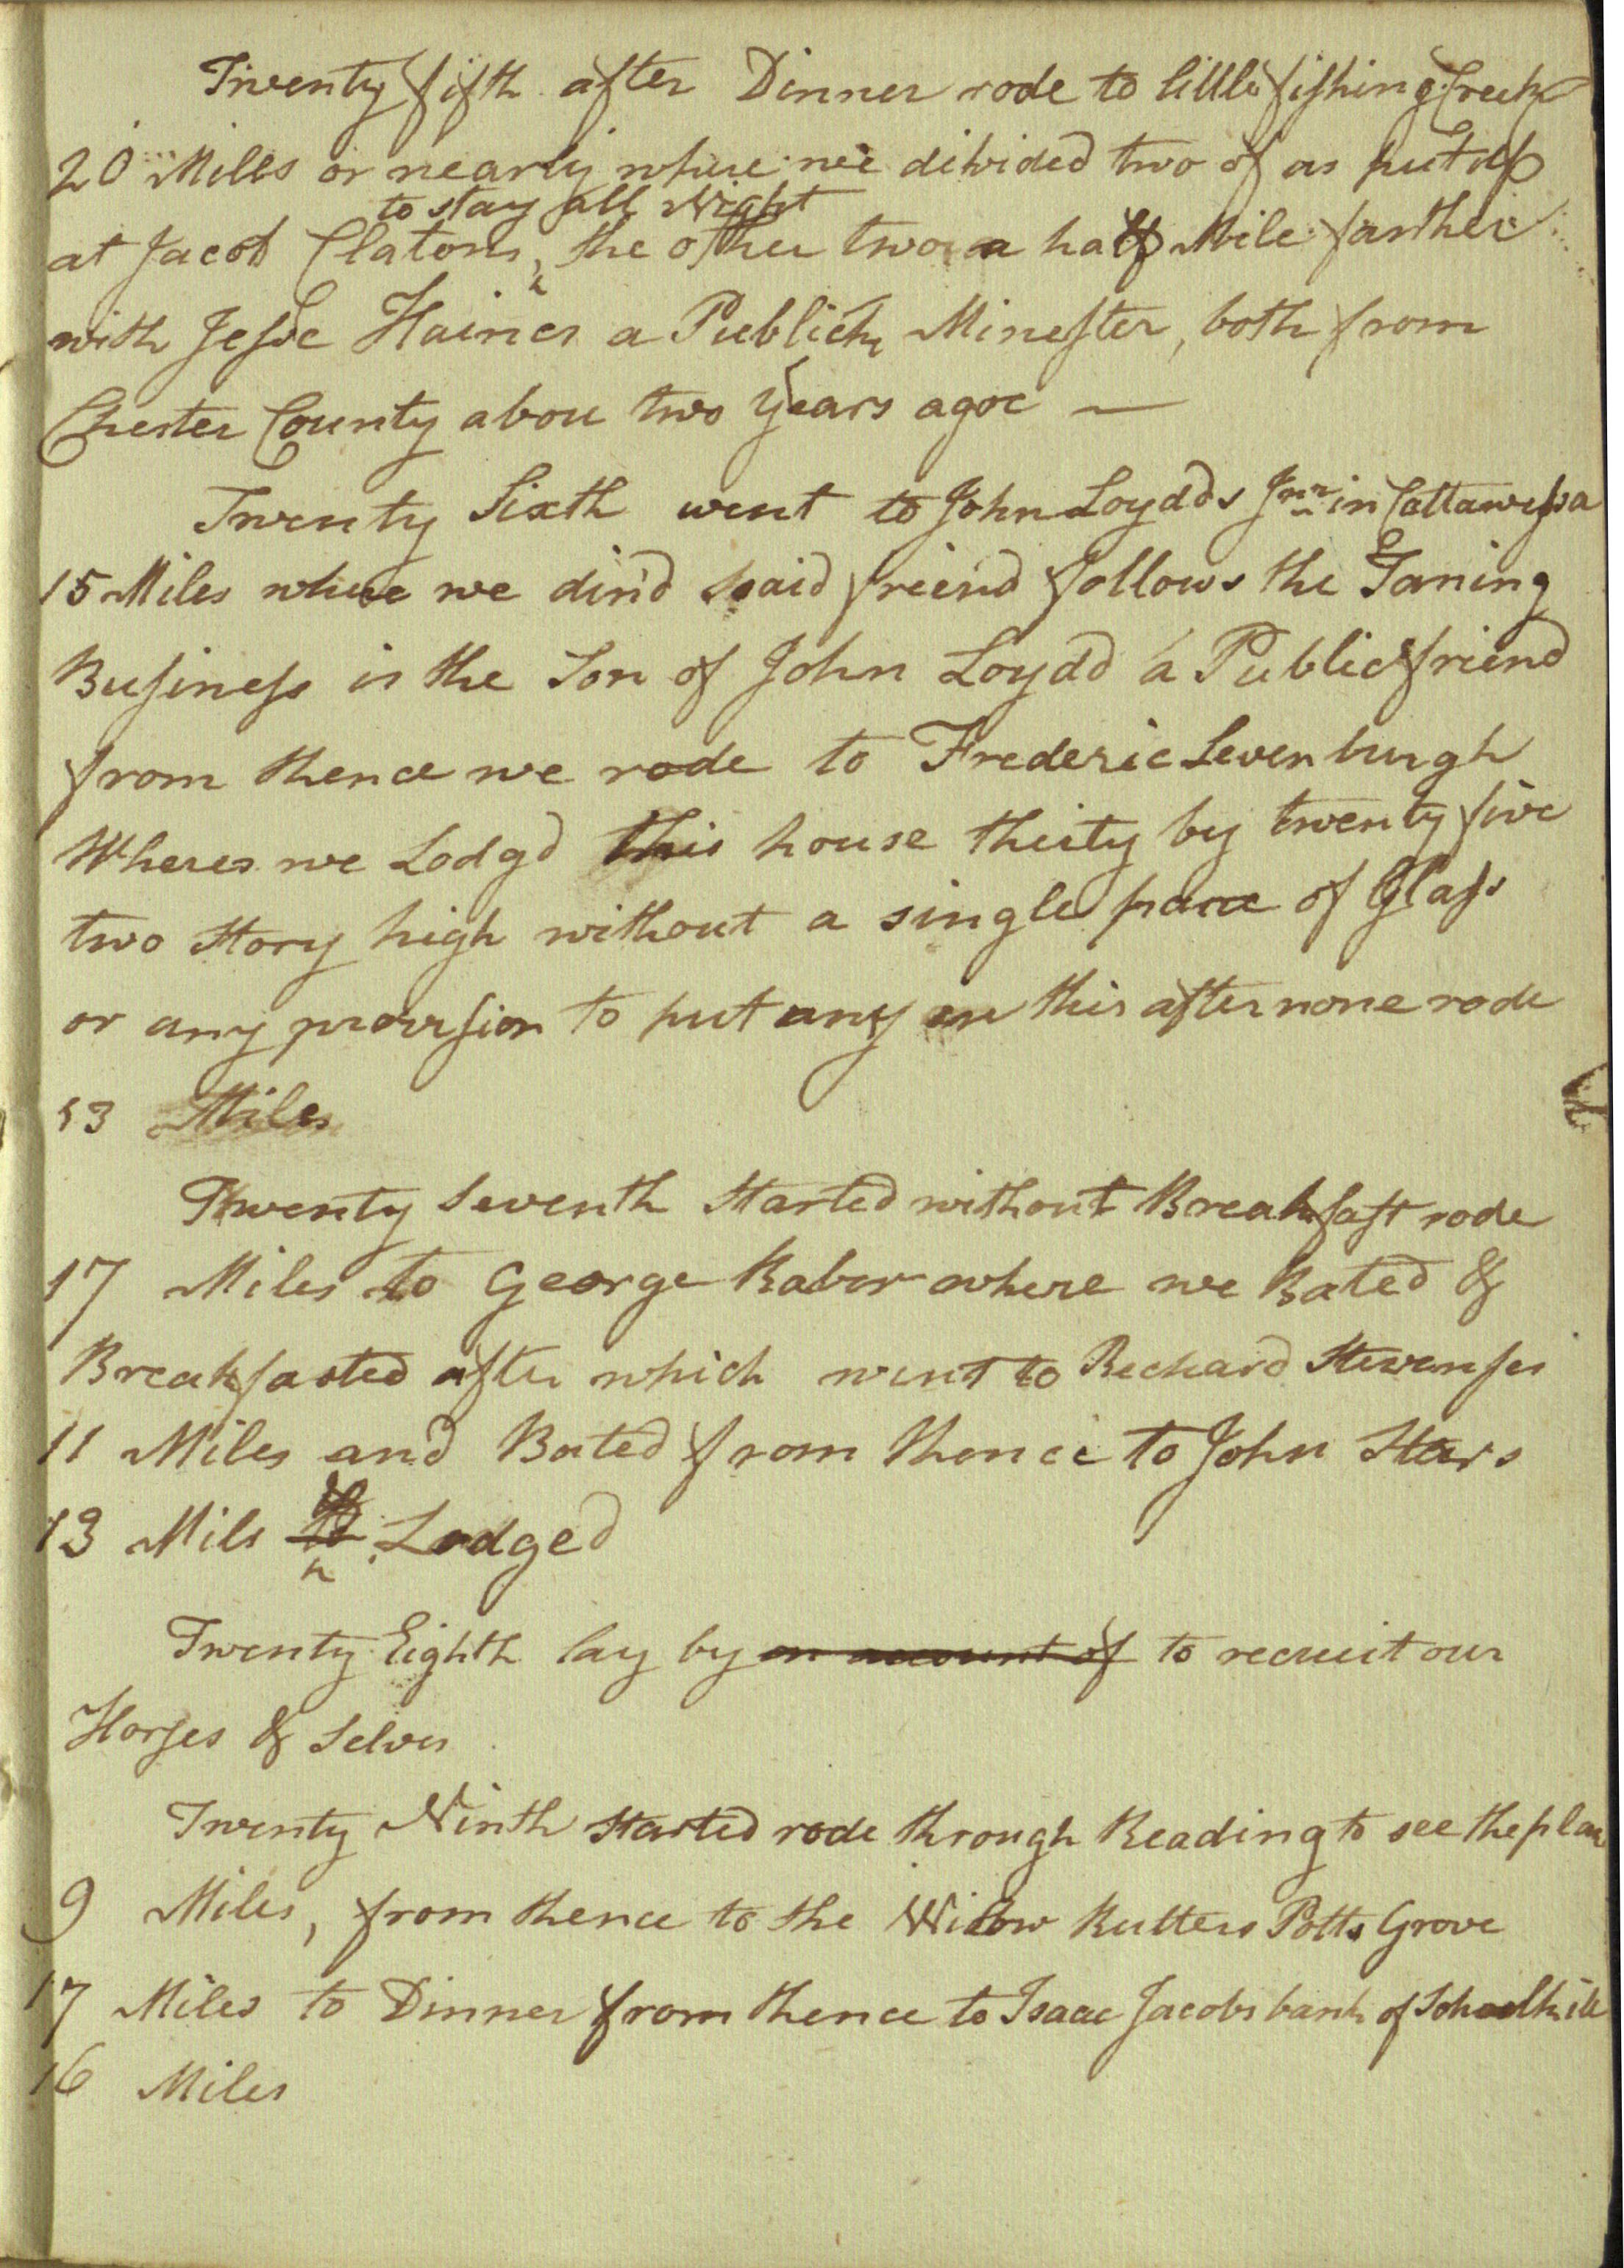 Twenty fifth after Dinner rode to little fishing Creek
20 Miles or nearly where we divided two of us put up
to stay all Night
at Jacob Clatons, the other two a half Mile farther
with Jesse Haines a Publick Minester, both from
Chester County abou two Years agoe —
Twenty Sixth went to John Loydds Jnr in Cattawessa
15 Miles where we din'd said friend follows the Taning
Business is the Son of John Loydd a Public friend
from thence we rode to Frederic Levenburgh
Wheres we Lodgd this house thirty by twenty five
two Story high without a single pane of Glass
or any provision to put any in this afternone rode
13 Miles
Twenty Seventh Started without Breakfast rode
17 Miles to George Rabor where we Bated &
Breakfasted after which went to Richard Stevenses
11 Miles and Bated from thence to John Stars
13 Mils & Lodged
Twenty Eighth lay by on account of to recruit our
Horses & Selves
Twenty Ninth Started rode through Reading to see the place
9 Miles, from thence to the Widow Rutters Potts Grove
17 Miles to Dinner from thence to Isaac Jacobs bank of Schoolkill
16 Miles